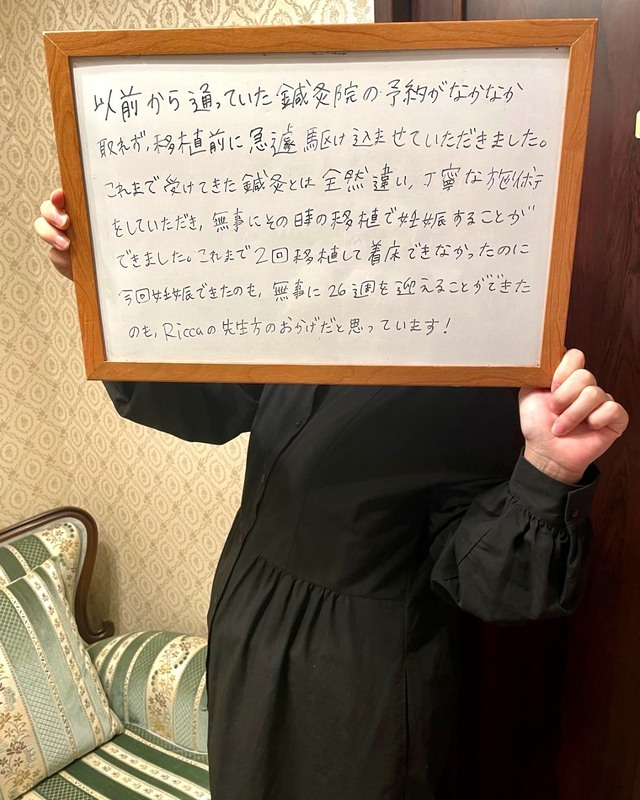 以前から通っていた鍼灸院の予約がなかなか
取れず、移植前に急遽駆け込ませていただきました。
これまで受けてきた鍼灸とは全然違い、丁寧な施術
をしていただき、無事にその時の移植で妊娠することが
できました。これまで2回移植して着床できなかったのに
今回妊娠できたのも、無事に26週を迎えることができた
のも、Riccaの先生方のおかげだと思っています!